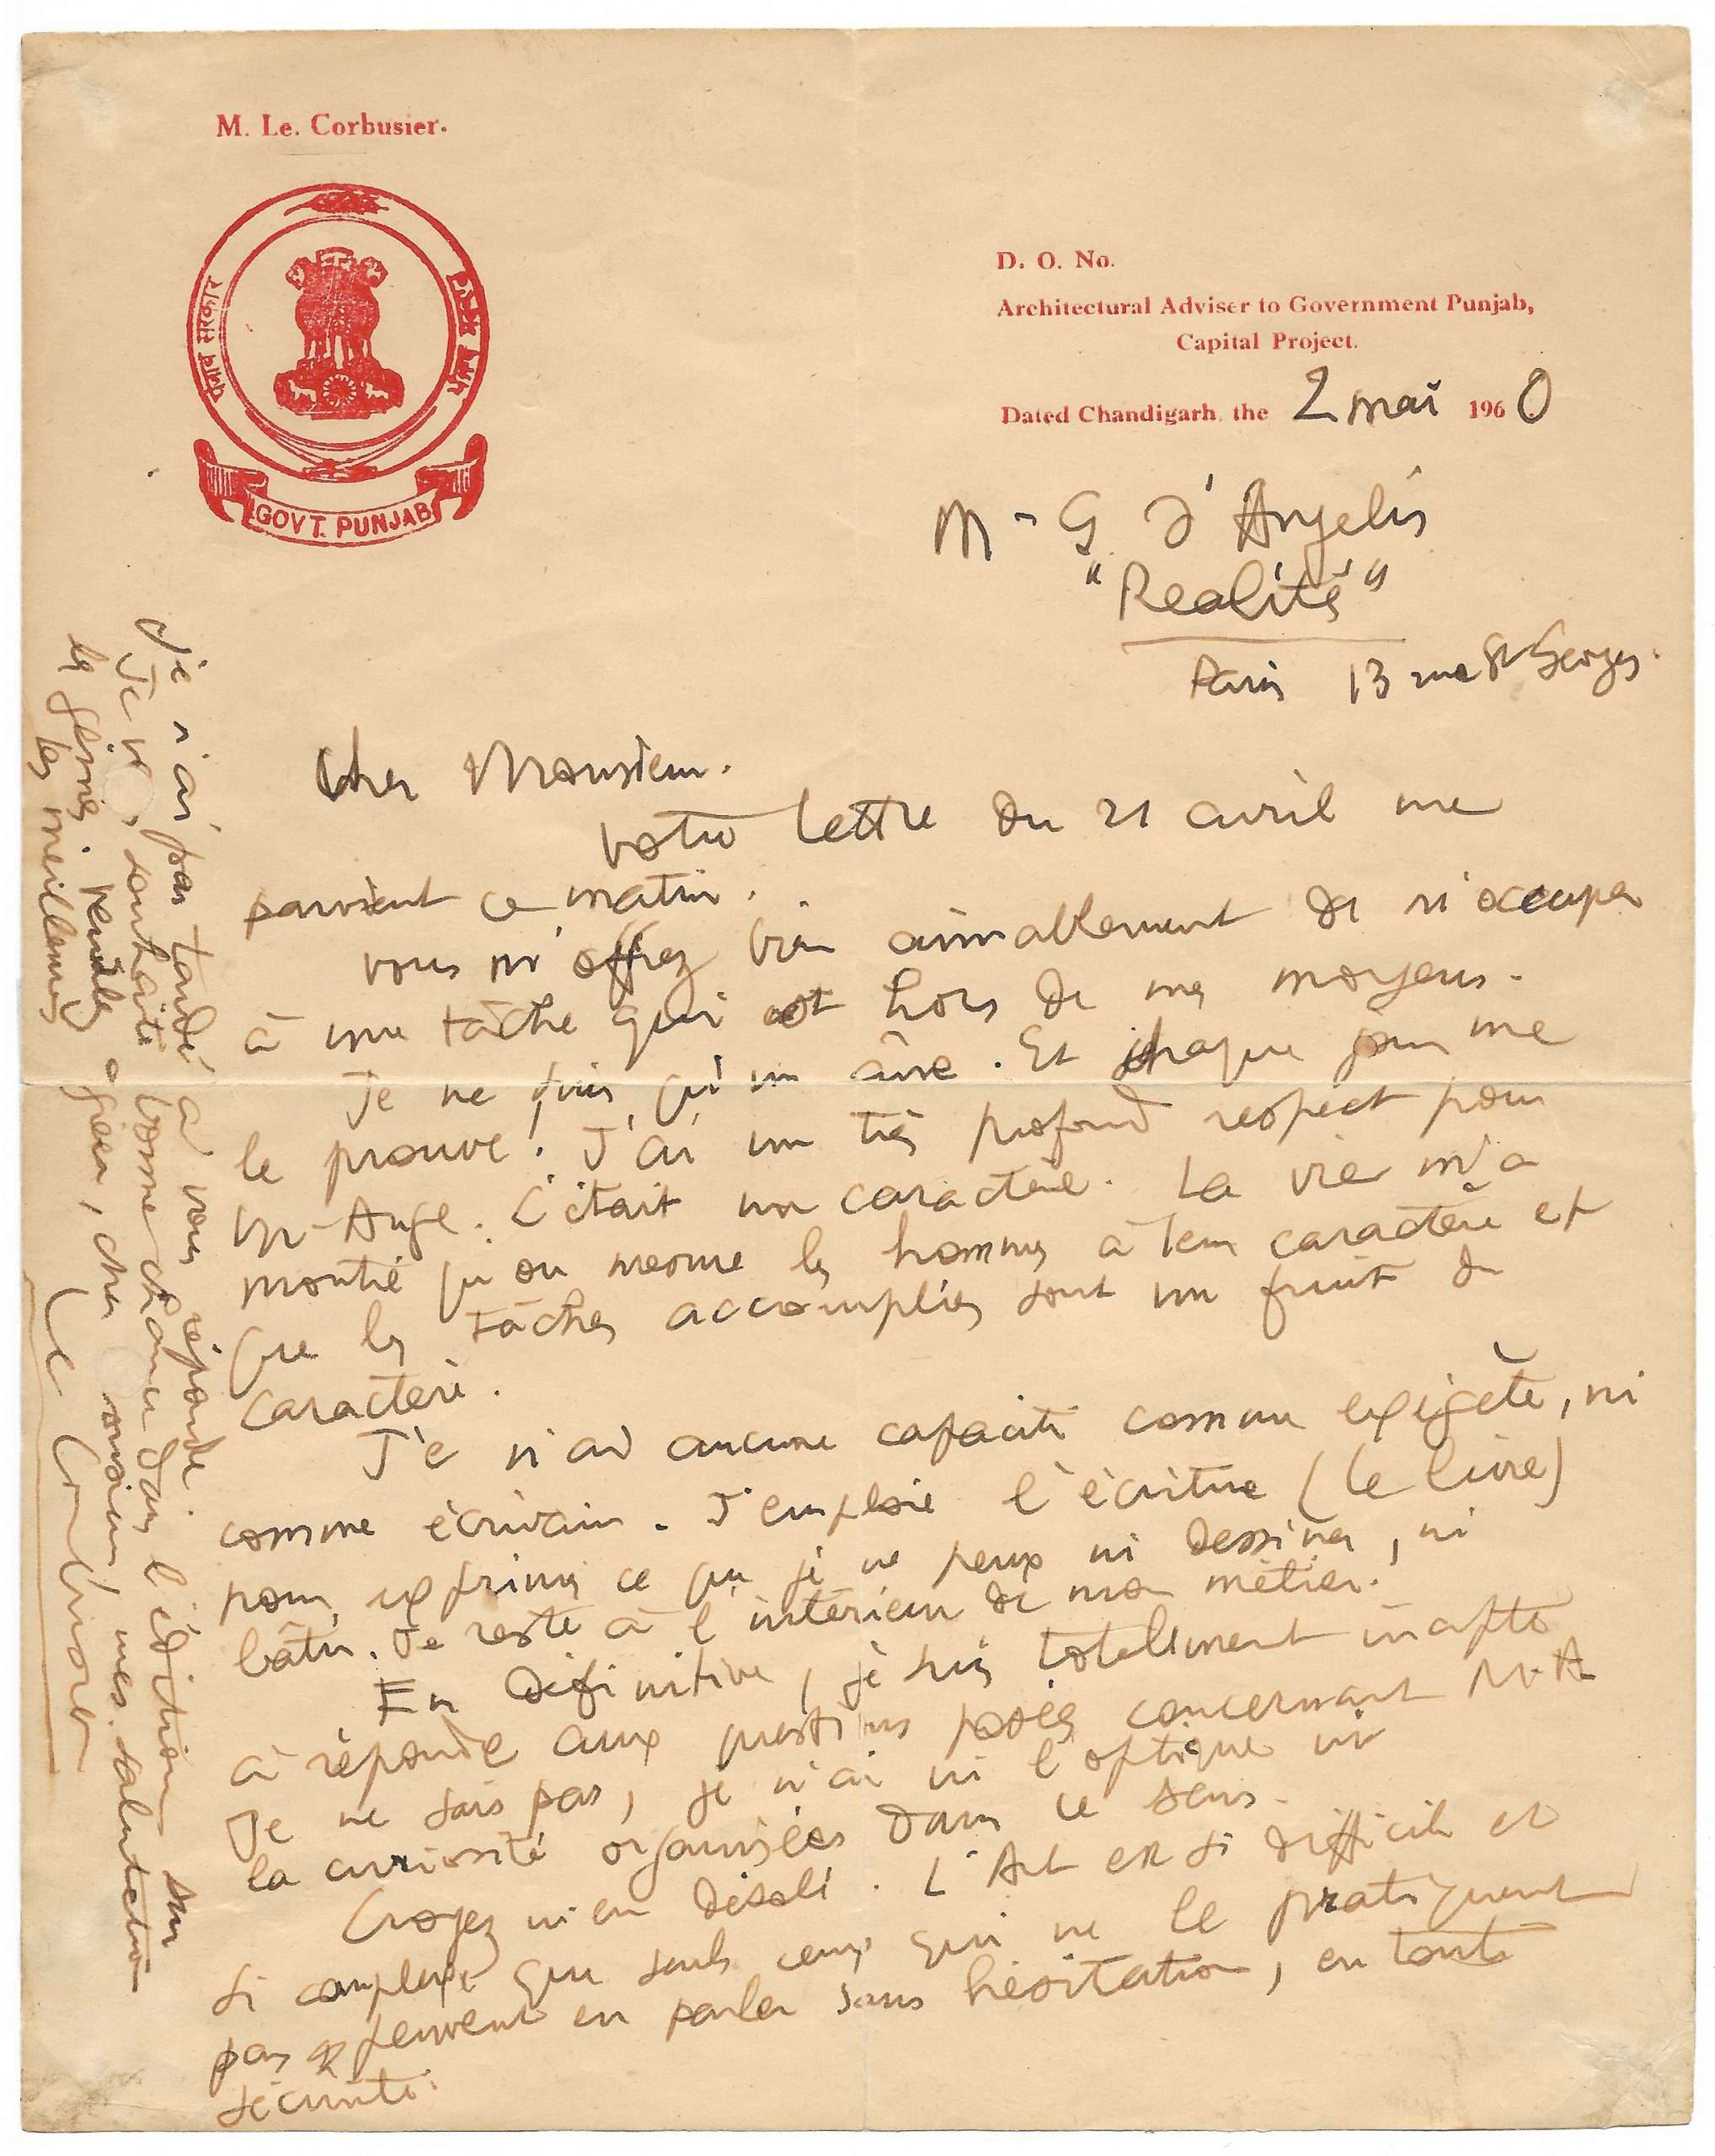 M. Le. Corbusier.
पंजाब सरकार
GOVT. PUNJAB
D. O. No.
Architectural Adviser to Government Punjab,
Capital Project.
Dated Chandigarh, the 2 mai 1960
Mr G d'Angelis
"Realités"
Paris 13 rue St Georges.
Cher Monsieur.
votre lettre du 21 avril me
parvient ce matin.
vous m'offrez bien aimablement de m'occuper
à une tâche qui est hors de mes moyens.
Je ne suis qu'un âne. Et chaque jour me
le prouve! J'ai un très profond respect pour
M-Ange. C'était un caractère. La vie m'a
montré qu'on mesure les hommes à leur caractère et
que les tâches accomplies sont un fruit du
caractère.
Je n'ai aucune capacité comme exigète, ni
comme écrivain. J'emploie l'écriture (le livre)
pour exprimer ce que je ne peux ni dessiner, ni
bâtir. Je reste à l'intérieur de mon métier.
En définitive, je suis totalement inapte
à répondre aux questions posées concernant M-A
Je ne sais pas, je n'ai ni l'optique ni
la curiosité organisées dans ce sens.
Croyez m'en désolé. L'Art est si difficile et
si complexe que seuls ceux qui ne le pratiquent
pas peuvent en parler sans hésitation, en toute
sécurité.
Je n'ai pas tardé à vous répondre.
Je vs souhaite bonne chance dans l'édition sur
les génies. veuillez agréer, cher monsieur, mes salutations
les meilleures
Le Corbusier